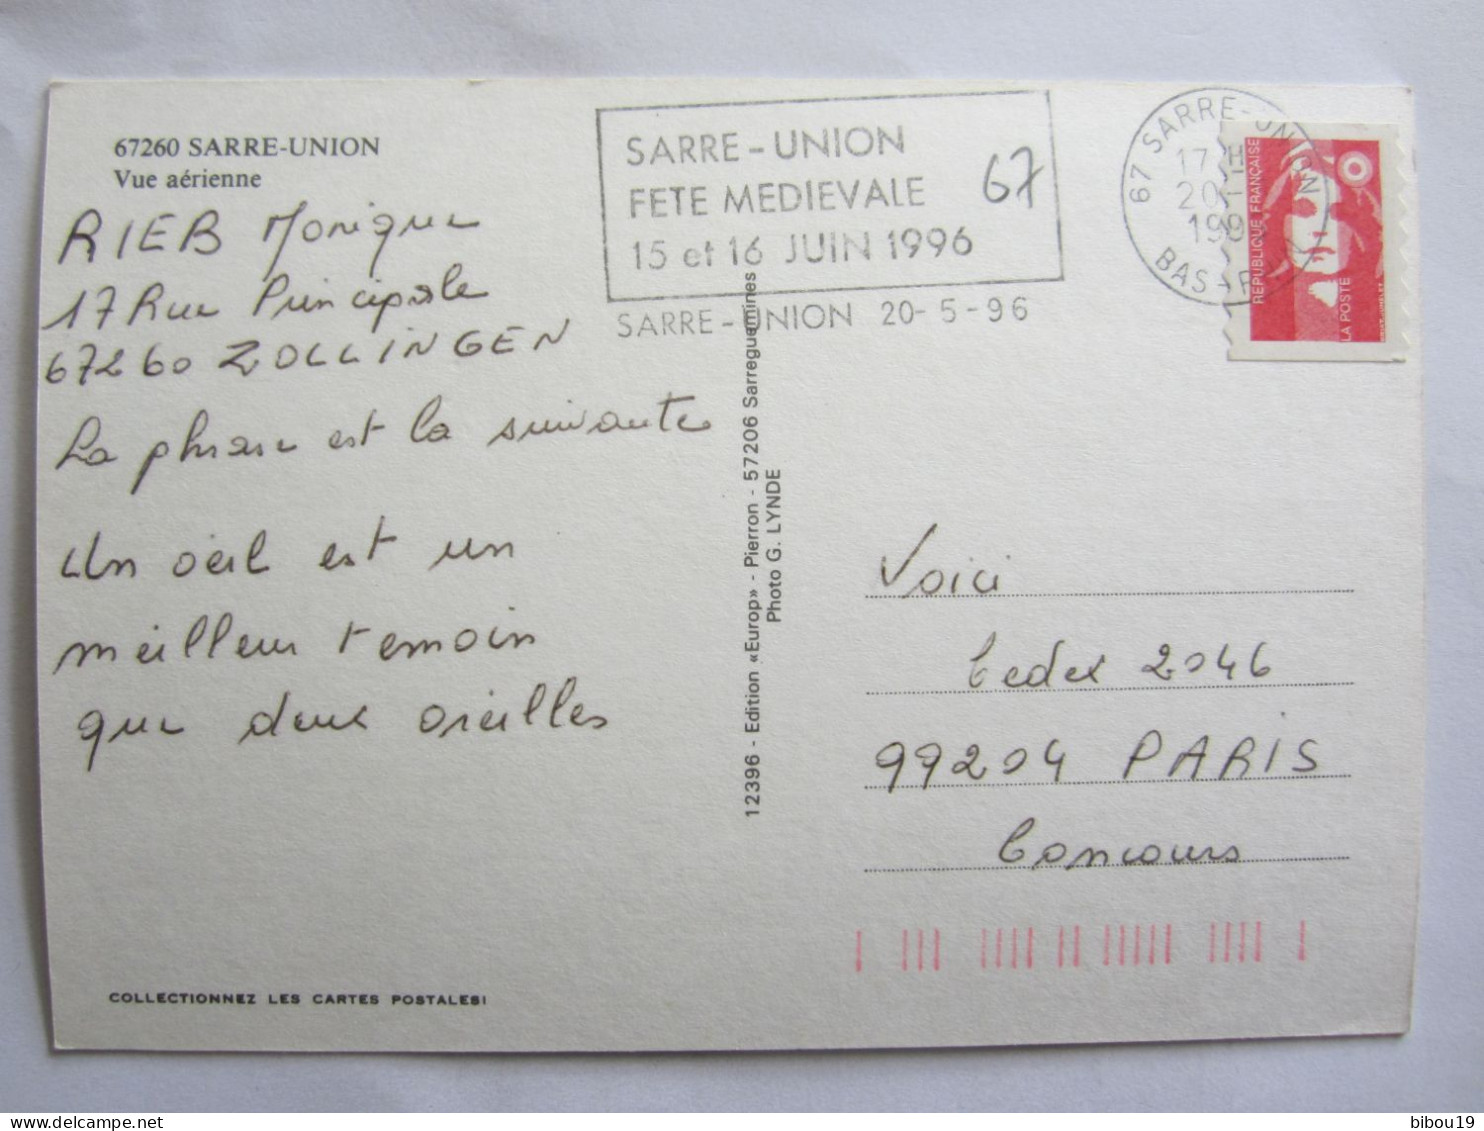 67260 SARRE-UNION
Vue aérienne
RIEB Monique
17 Rue Principale
67260 ZOLLINGEN
La phrase est la suivante
Un oeil est un
meilleur temoin
que deux oreilles
COLLECTIONNEZ LES CARTES POSTALES!
SARRE-UNION
FETE MEDIEVALE
15 et 16 JUIN 1996
67
SARRE-UNION 20-5-96
67 SARRE-UNION
17 H
20-
199
BAS-R
REPUBLIQUE FRANÇAISE
LA POSTE
12396 - Edition «Europ» - Pierron - 57206 Sarreguemines
Photo G. LYNDE
Voici
Cedex 2046
99204 PARIS
Concours
bibou19